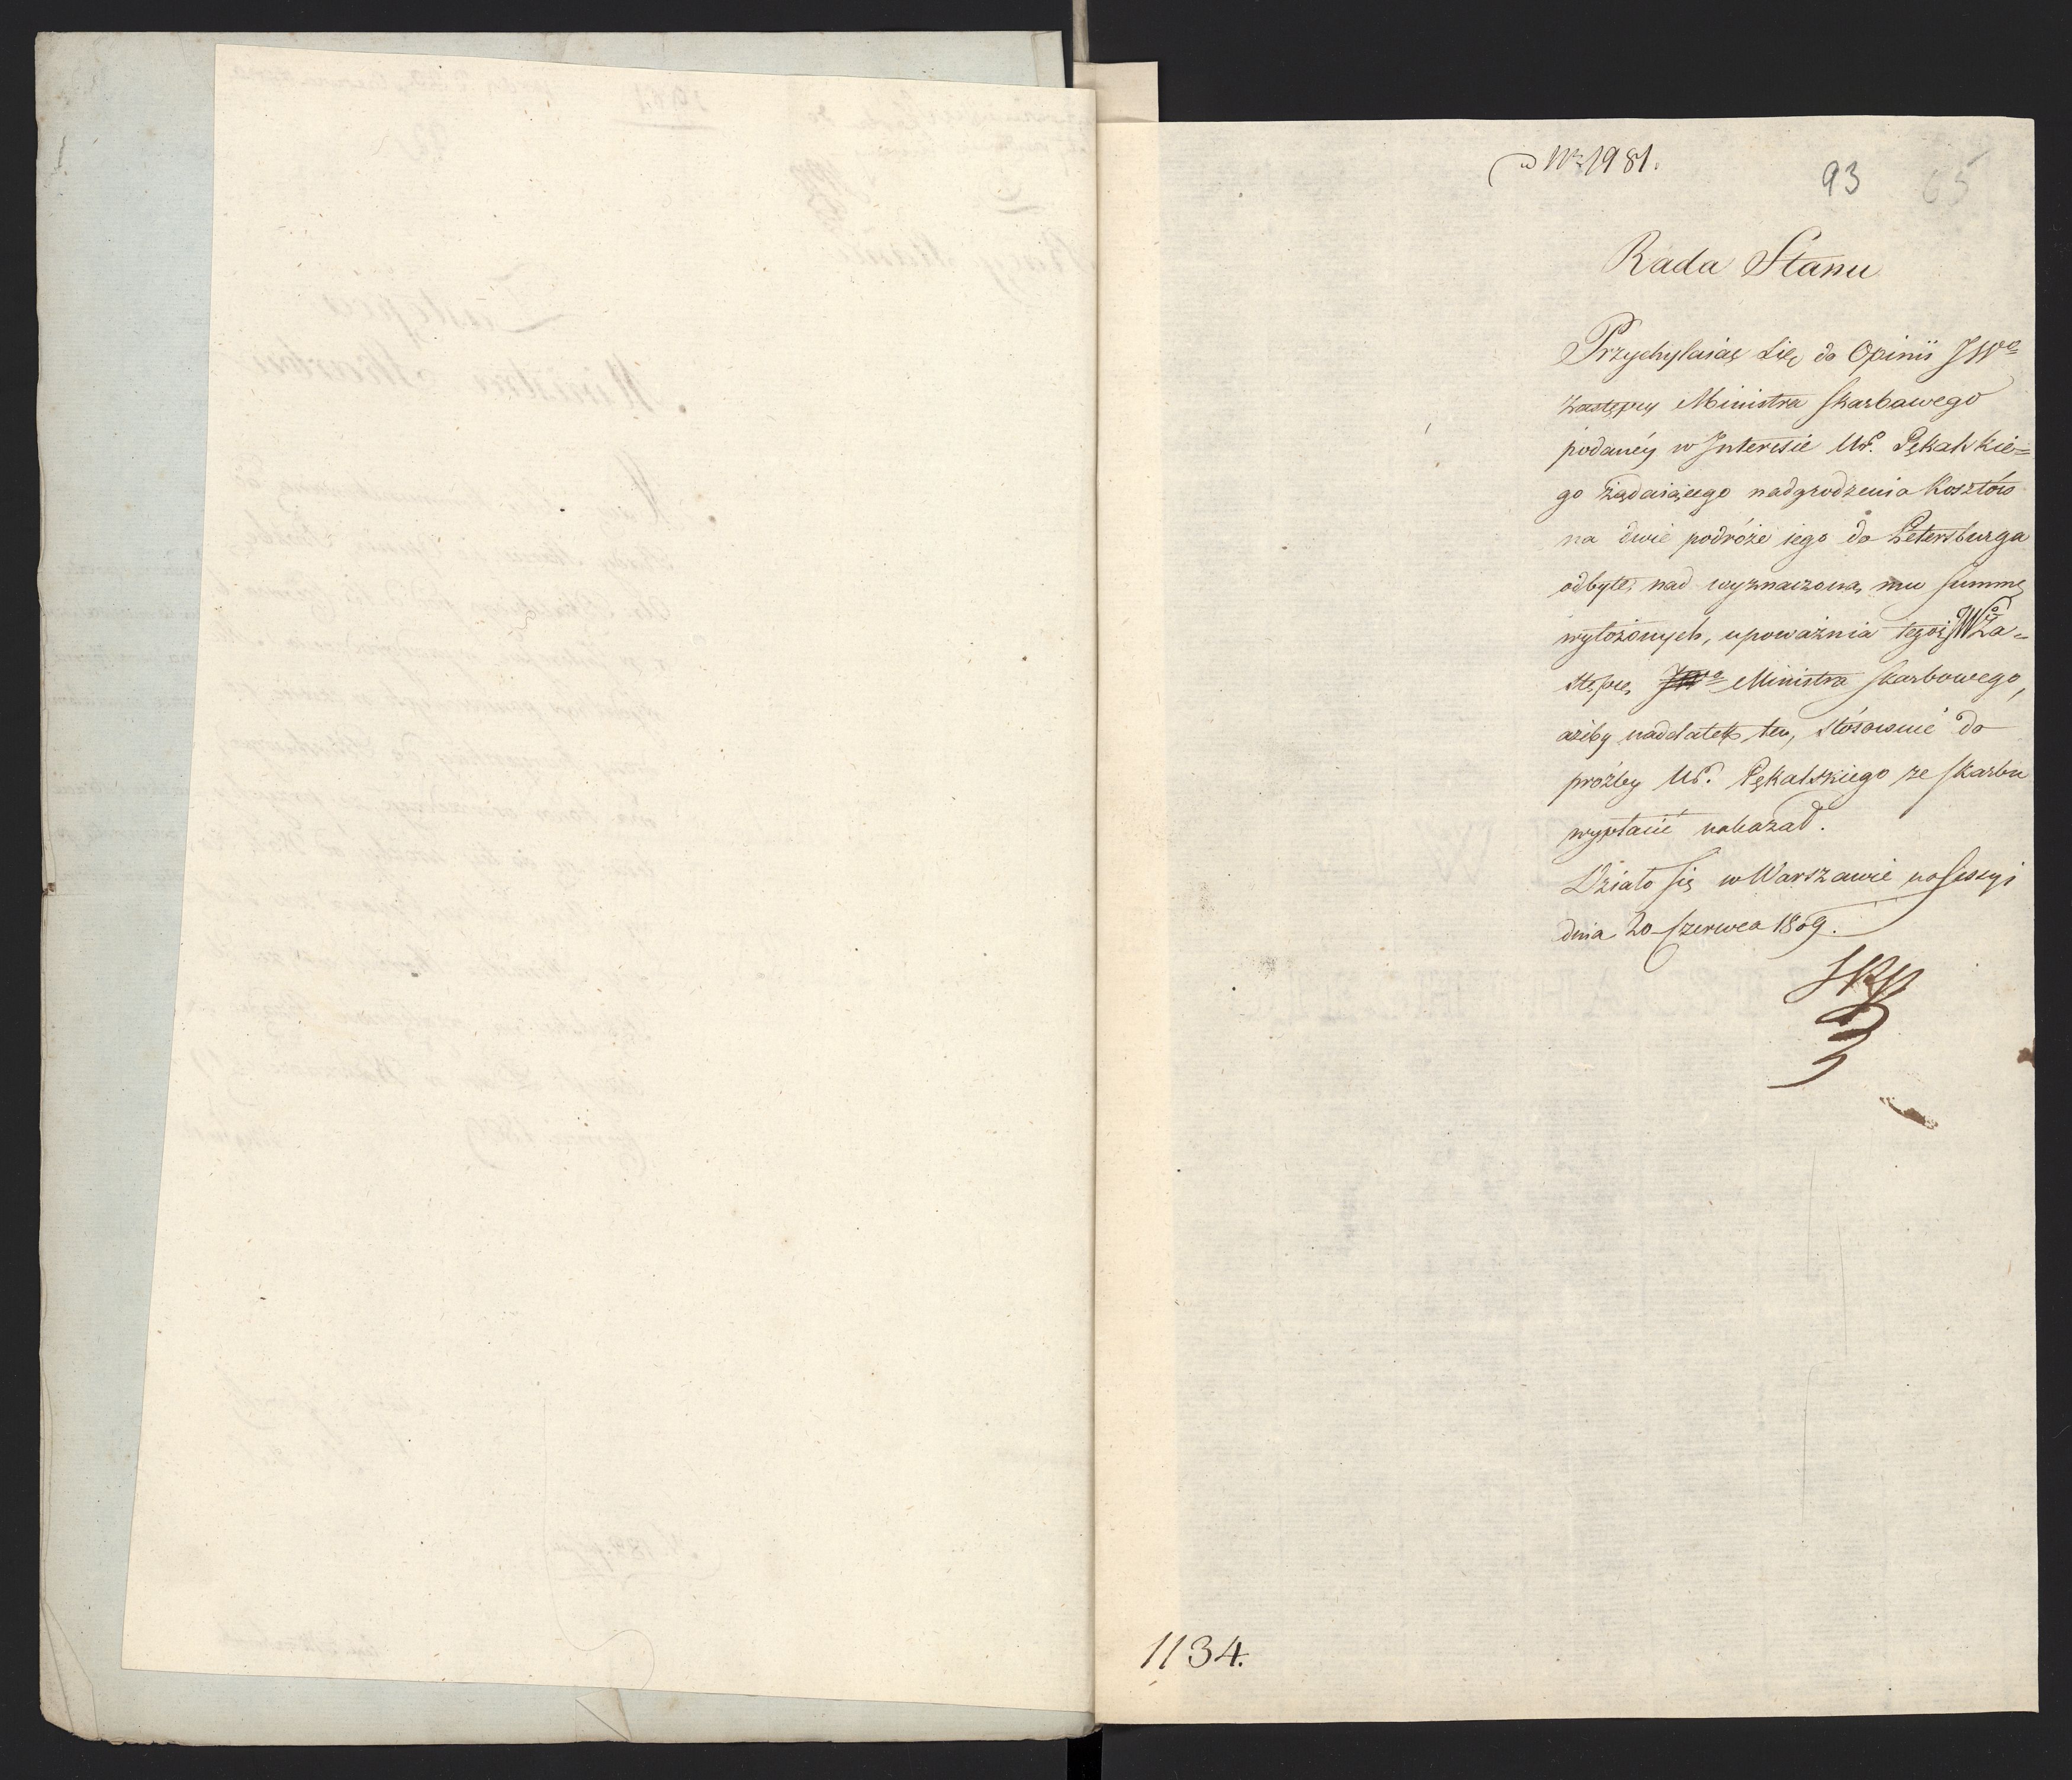 ad Nr 1981.
93 65
Rada Stanu
Przychylaiąc się do Opinii JWo
Zastępcy Ministra Skarbowego
podanéy w Interesie Ur. Pękalskie=
go żądaiącego nadgrodzenia kosztów
na dwie podróże iego do Petersburga
odbyte, nad wyznaczoną mu summę
wyłożonych, upoważnia tegoż JWo Za=
stępcę Ministra Skarbowego,
ażeby naddatek ten, stósownie do
prożby Ur. Pękalskiego ze skarbu
wypłacić nakazał.
Działo się w Warszawie na Sessyi
dnia 20 Czerwca 1809.
1134.